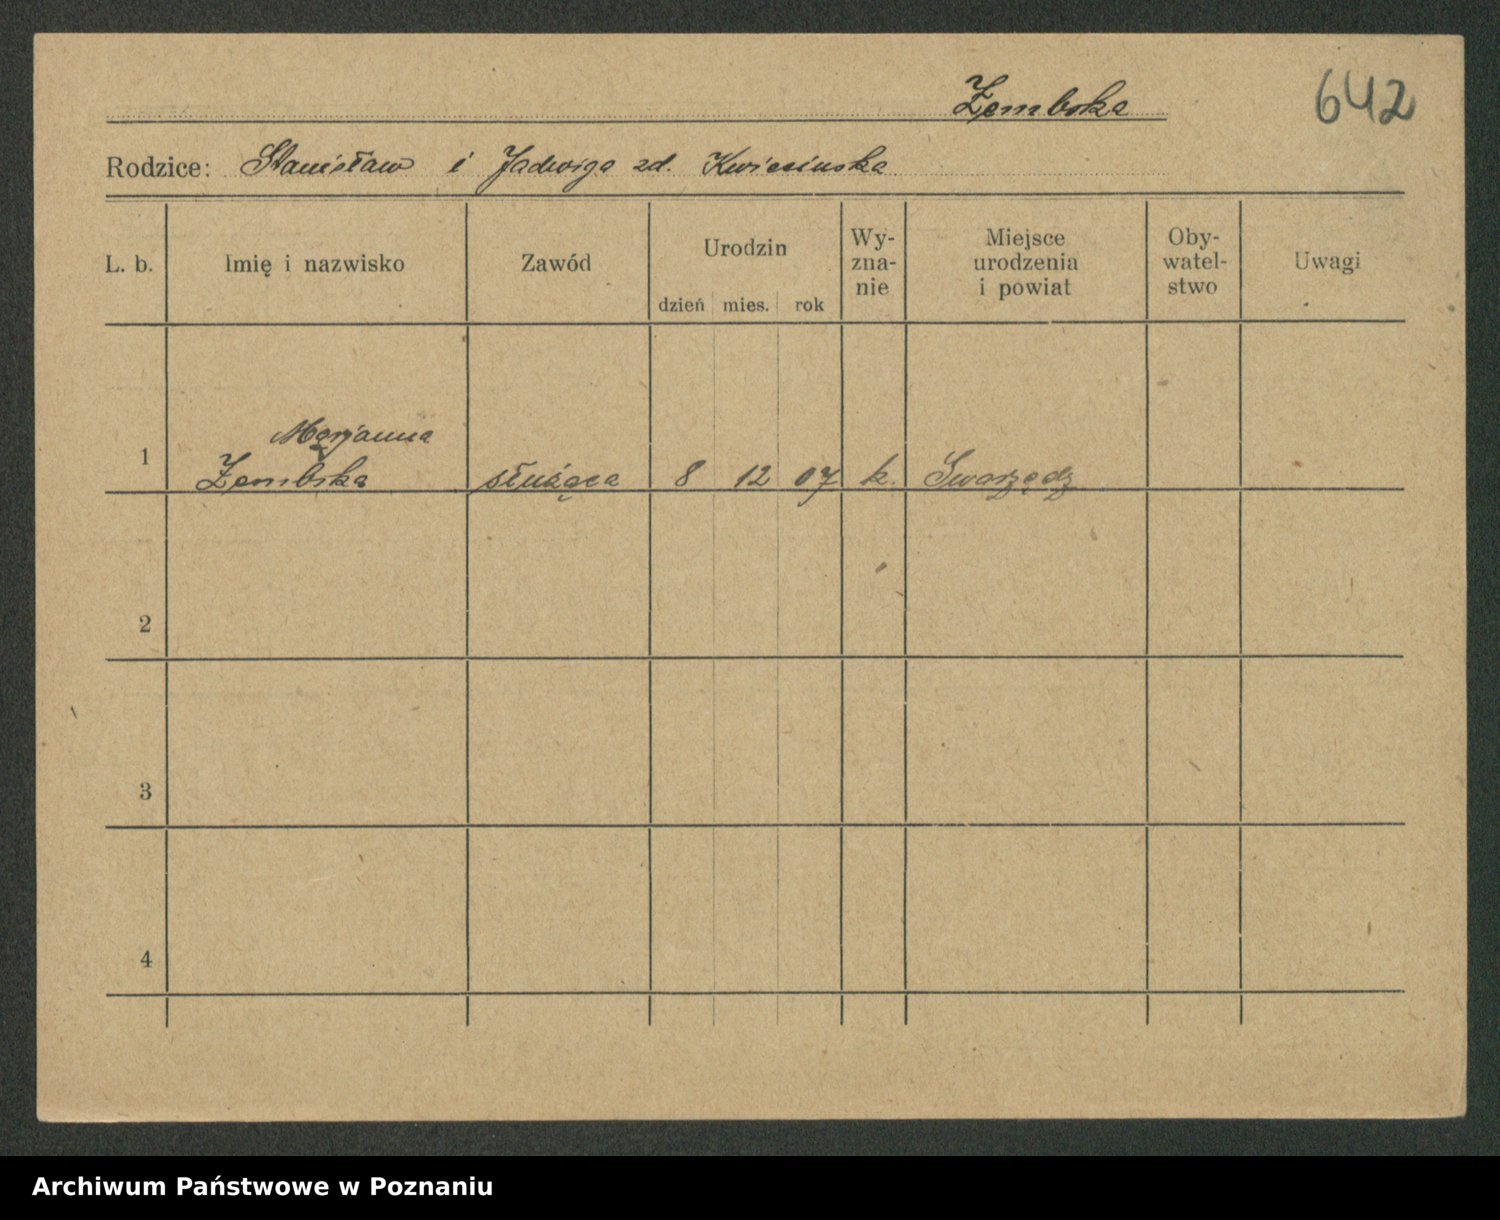 Zembska
642
Rodzice: Stanisław i Jadwiga zd. Kwiecińska
L. b. Imię i nazwisko Zawód Urodzin dzień mies. rok Wy-zna-nie Miejsce urodzenia i powiat Oby-watel-stwo Uwagi
Marjanna
1 Zembska służąca 8 12 07 k. Swarzędz
2
3
4
Archiwum Państwowe w Poznaniu